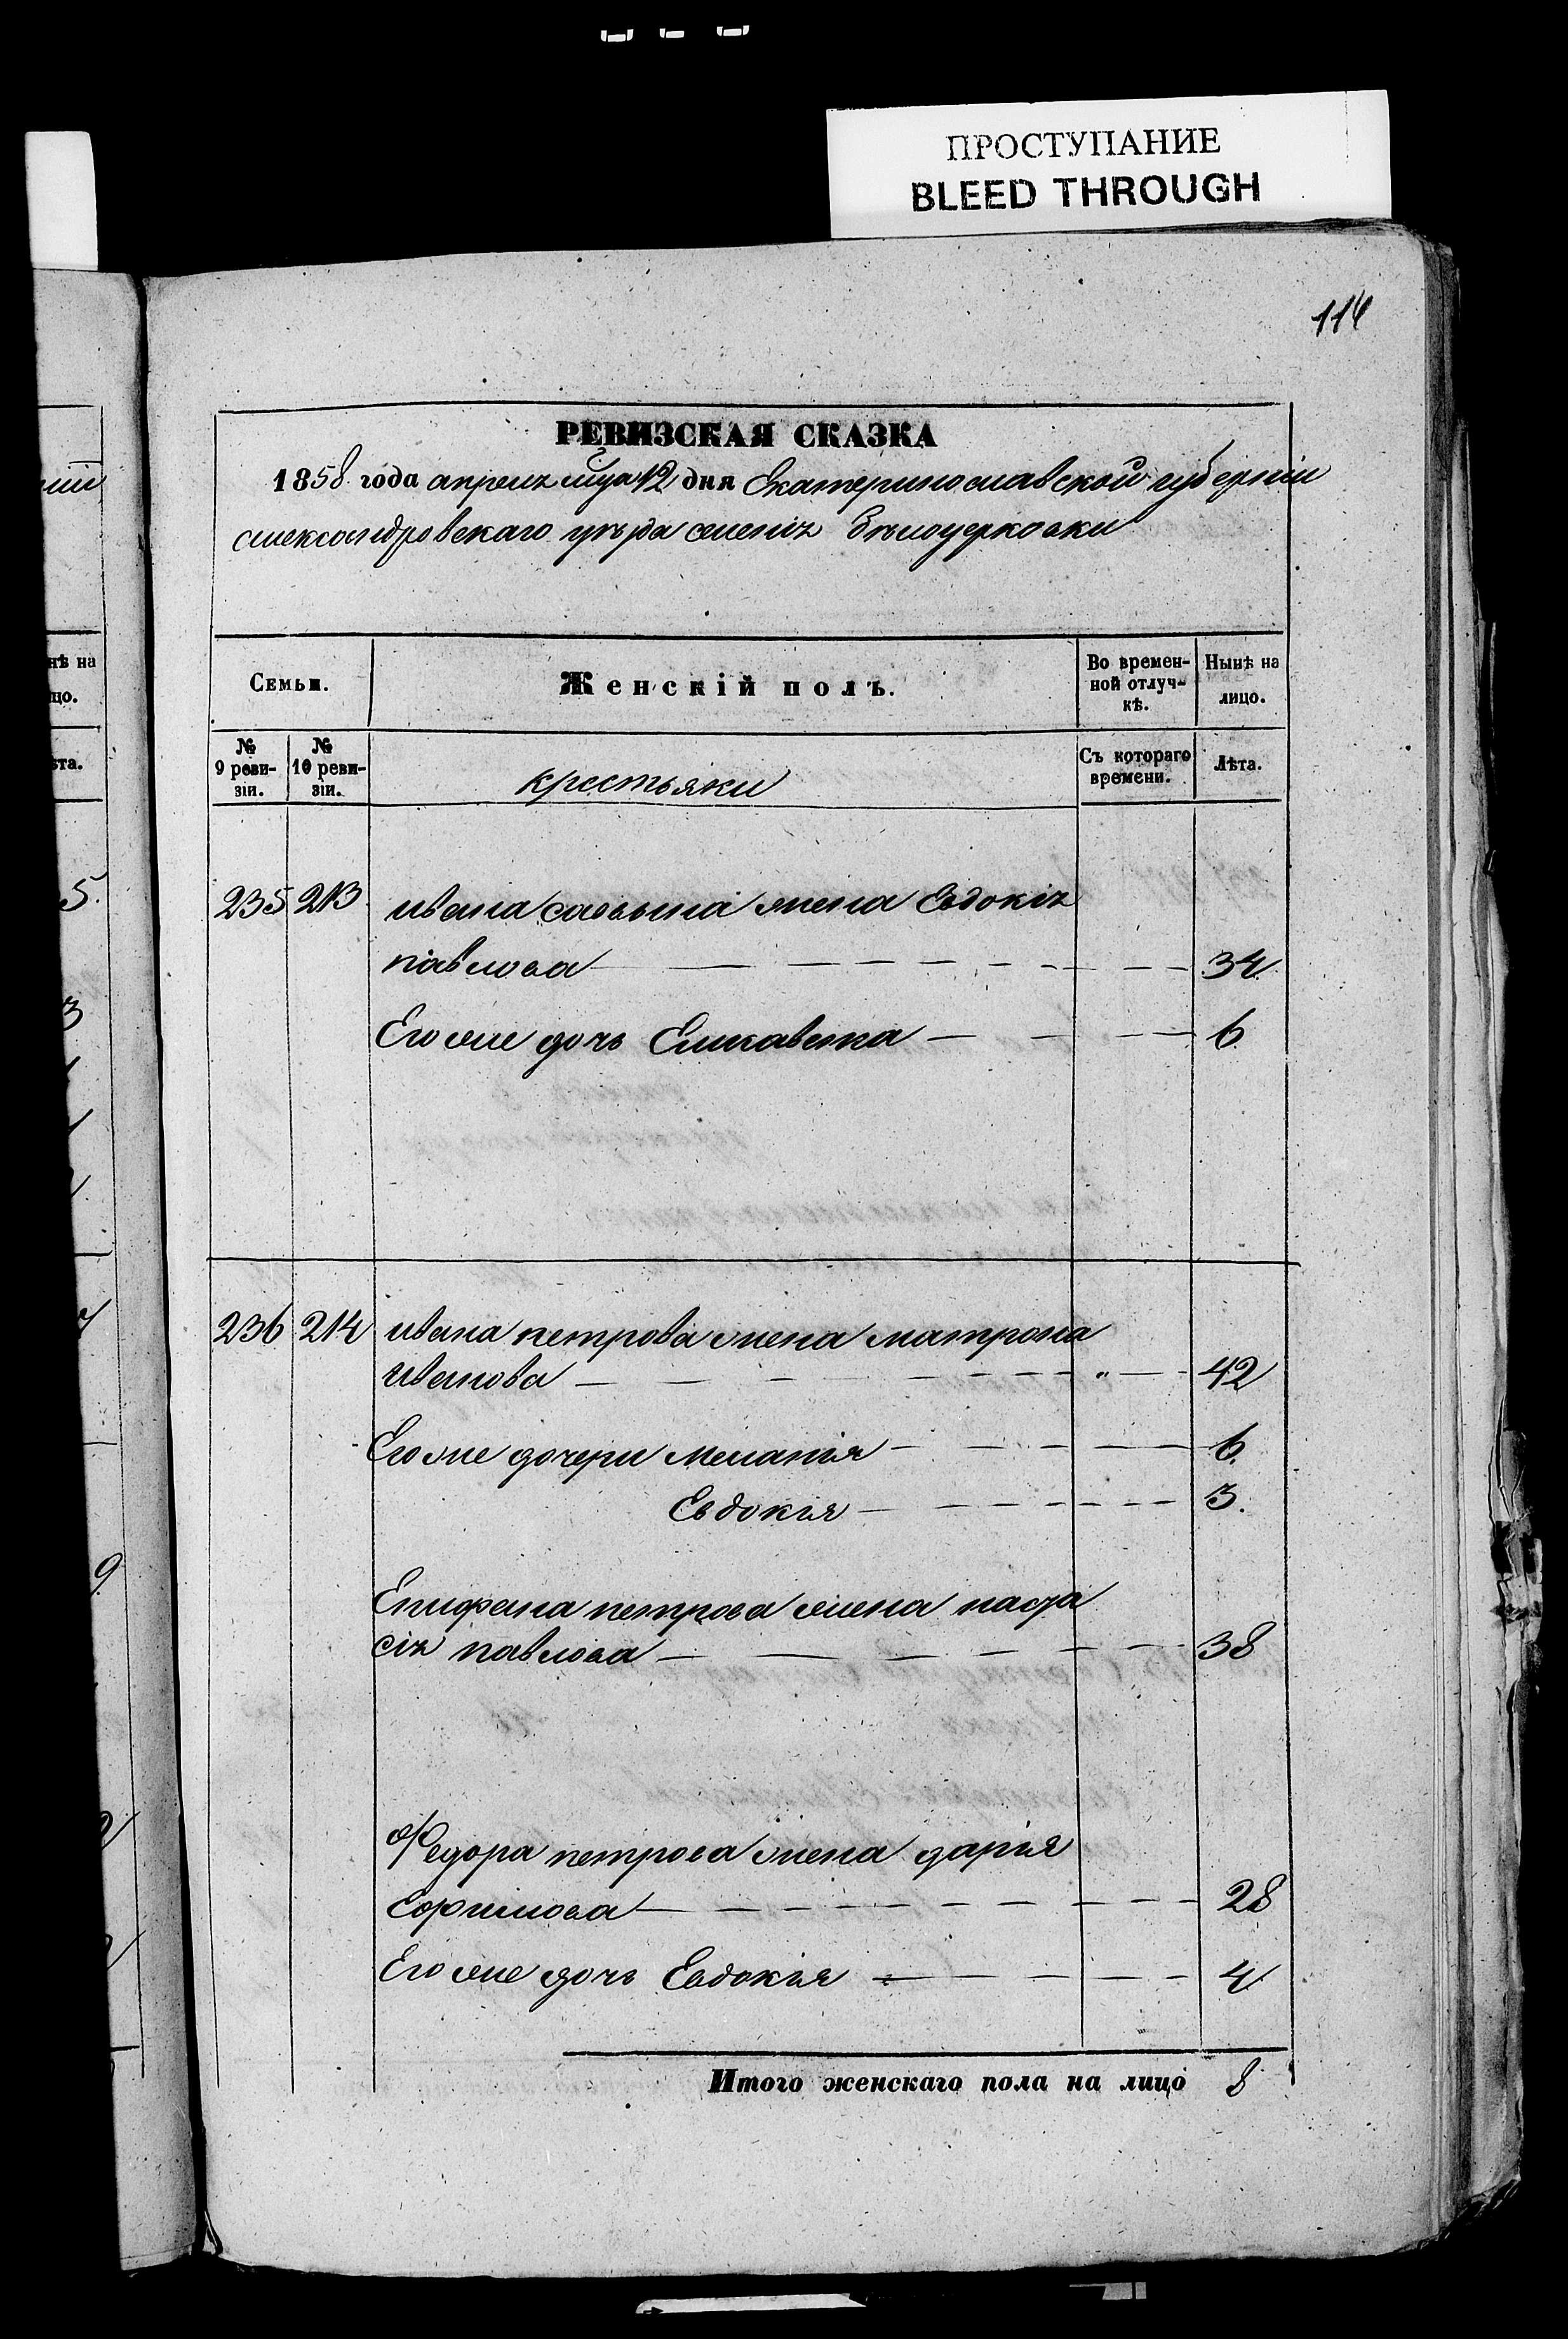 ПРОСТУПАНИЕ
BLEED THROUGH
114
РЕВИЗСКАЯ СКАЗКА
1858 года апреля мца 12 дня Екатеринославской губерніи
александровскаго уѣзда селенія бѣлоцерковки
Семьи.
Женскій полъ.
Во времен-
ной отлуч-
кѣ.
Нынѣ на
лицо.
№
9 реви-
зіи.
№
10 реви-
зіи.
крестьяки
Съ котораго
времени.
Лѣта.
235 213 ивана савьина жена Евдокія
павлова 34
Его же дочь Елисавета 6
236 214 ивана петрова жена матрона
иванова " 42
Его же дочери меланія 6.
Евдокия 3.
Епифана петрова жена наста
сія павлова 38
Федора петрова жена дарія
ефимова 28
Его же дочь Евдокия 4
Итого женскаго пола на лицо 8
нѣ на
цо.
ѣта.
5.
3
9